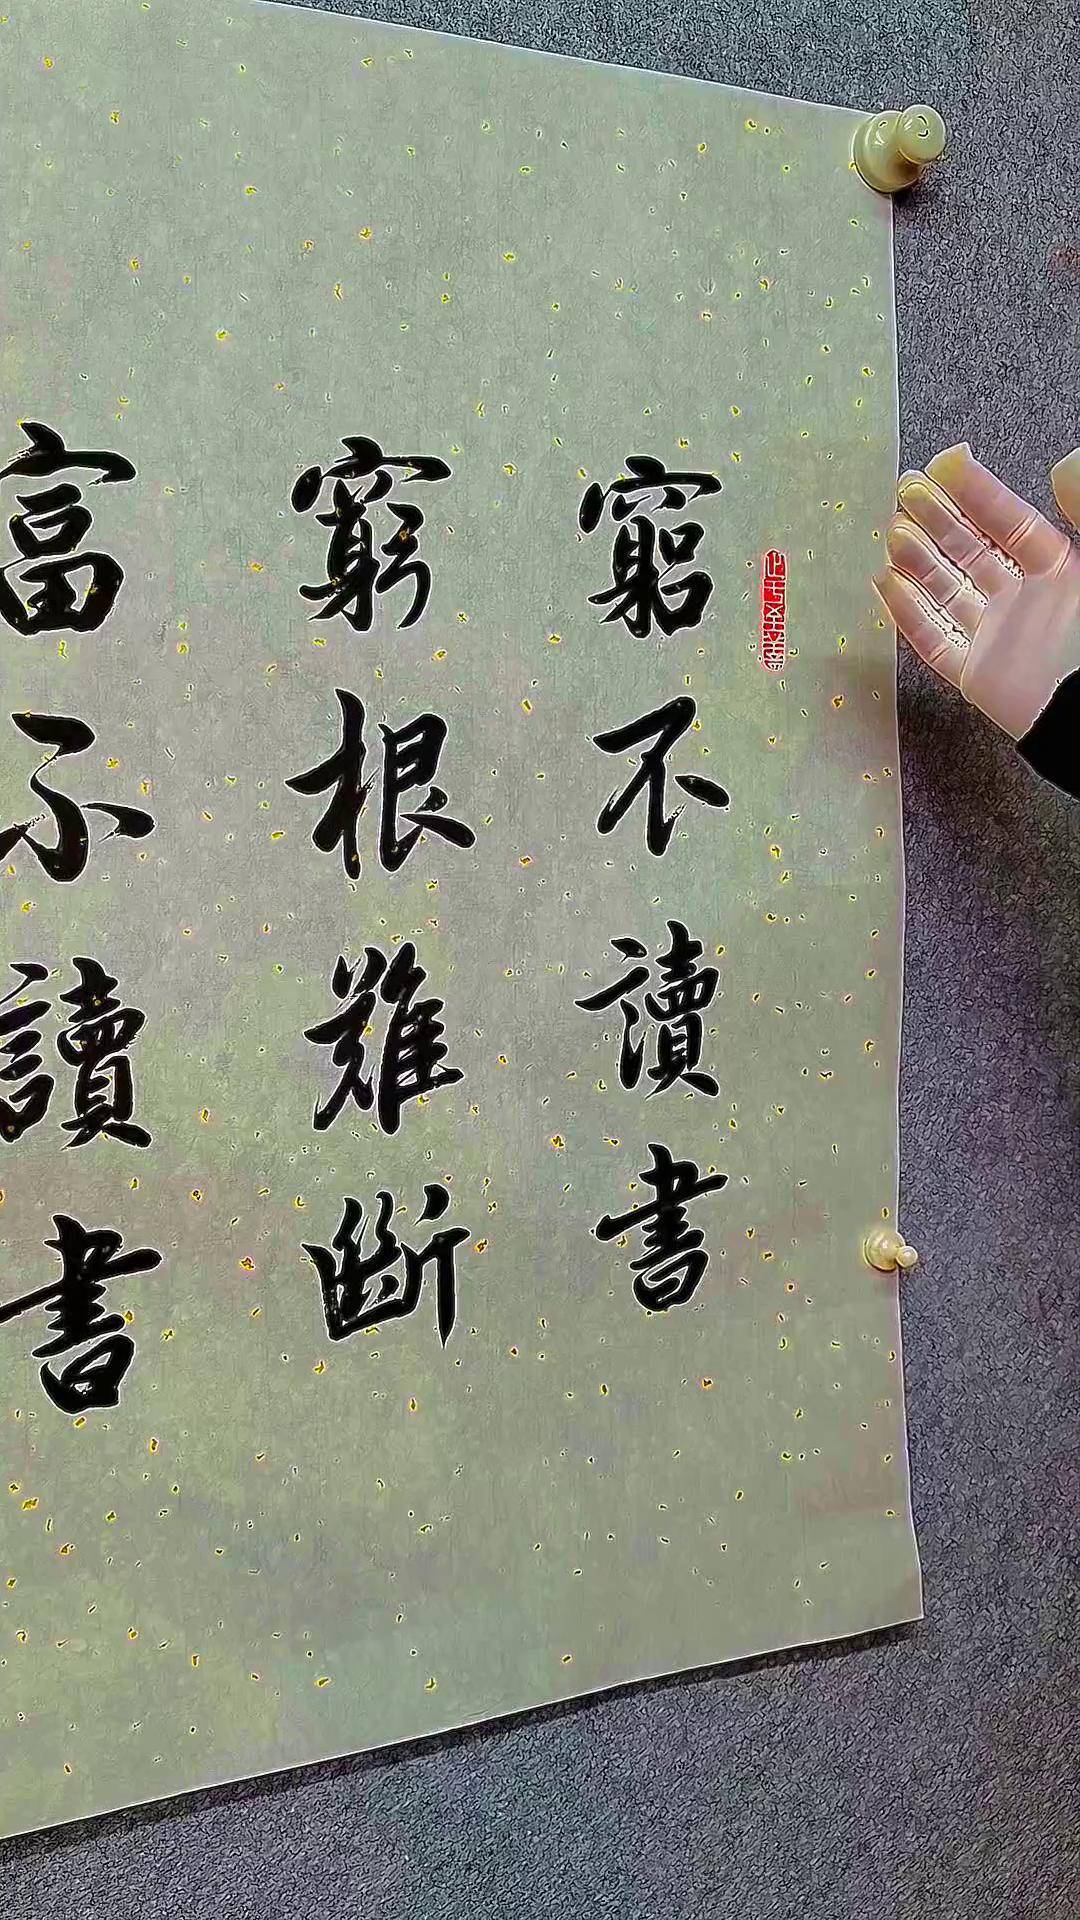 窮不讀書
窮根難斷
富不讀書